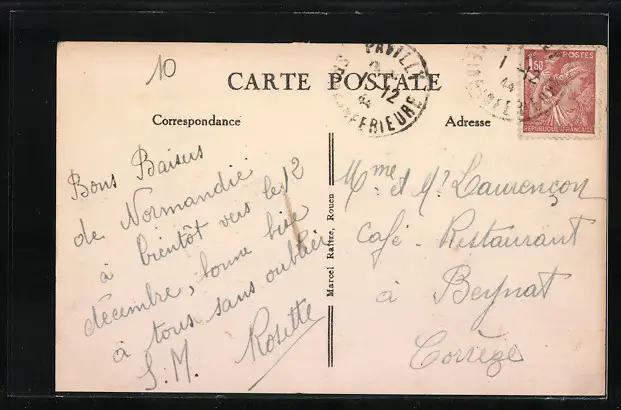 10
CARTE POSTALE
PAVILLY
1-12
44
SEINE-INFERIEURE
1-12
44
1F50
POSTES
REPUBLIQUE FRANÇAISE
Correspondance
Adresse
Bons Baisers
de Normandie
à bientôt vers le 12
décembre, bonne bise
à tous sans oublier
S.M. Rosette
Marcel Rouen
Mme et Mr Laurençon
Café - Restaurant
à Beynat
Corrèze